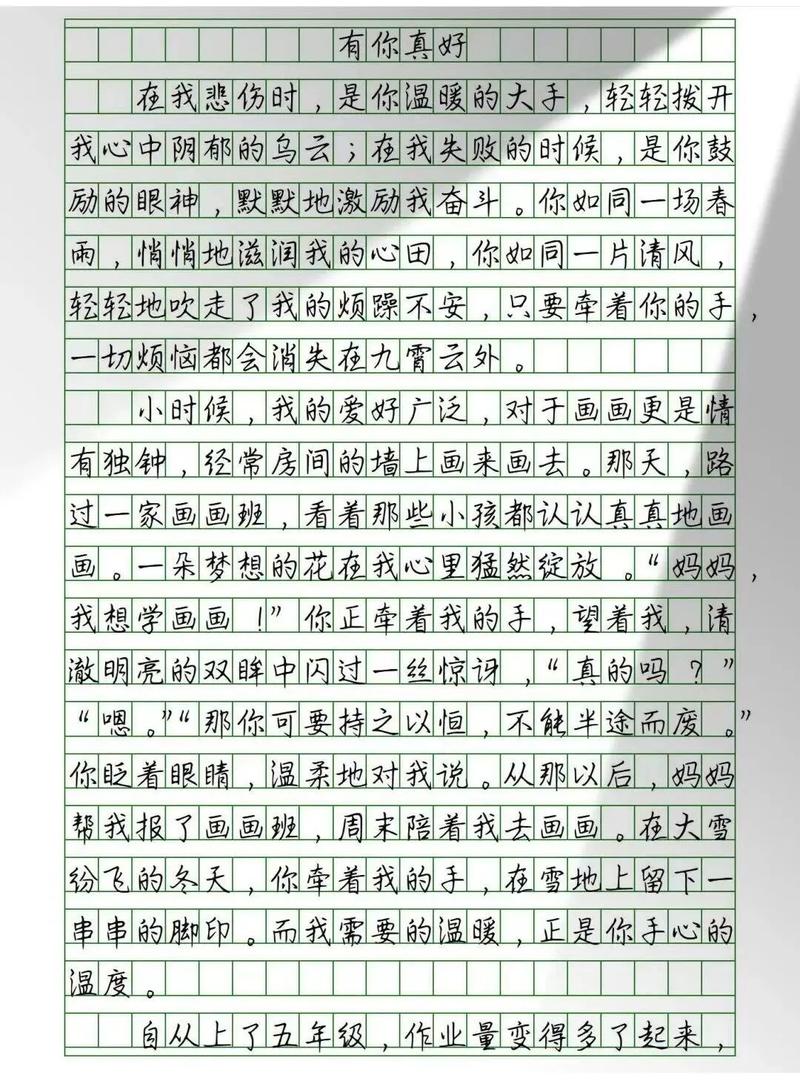 有你真好
在我悲伤时，是你温暖的大手，轻轻拨开
我心中阴郁的乌云；在我失败的时候，是你鼓
励的眼神，默默地激励我奋斗。你如同一场春
雨，悄悄地滋润我的心田，你如同一片清风，
轻轻地吹走了我的烦躁不安，只要牵着你的手，
一切烦恼都会消失在九霄云外。
小时候，我的爱好广泛，对于画画更是情
有独钟，经常房间的墙上画来画去。那天，路
过一家画画班，看着那些小孩都认认真真地画
画。一朵梦想的花在我心里猛然绽放。“妈妈，
我想学画画！”你正牵着我的手，望着我，清
澈明亮的双眸中闪过一丝惊讶，“真的吗？”
“嗯。”“那你可要持之以恒，不能半途而废。”
你眨着眼睛，温柔地对我说。从那以后，妈妈
帮我报了画画班，周末陪着我去画画。在大雪
纷飞的冬天，你牵着我的手，在雪地上留下一
串串的脚印。而我需要的温暖，正是你手心的
温度。
自从上了五年级，作业量变得多了起来，